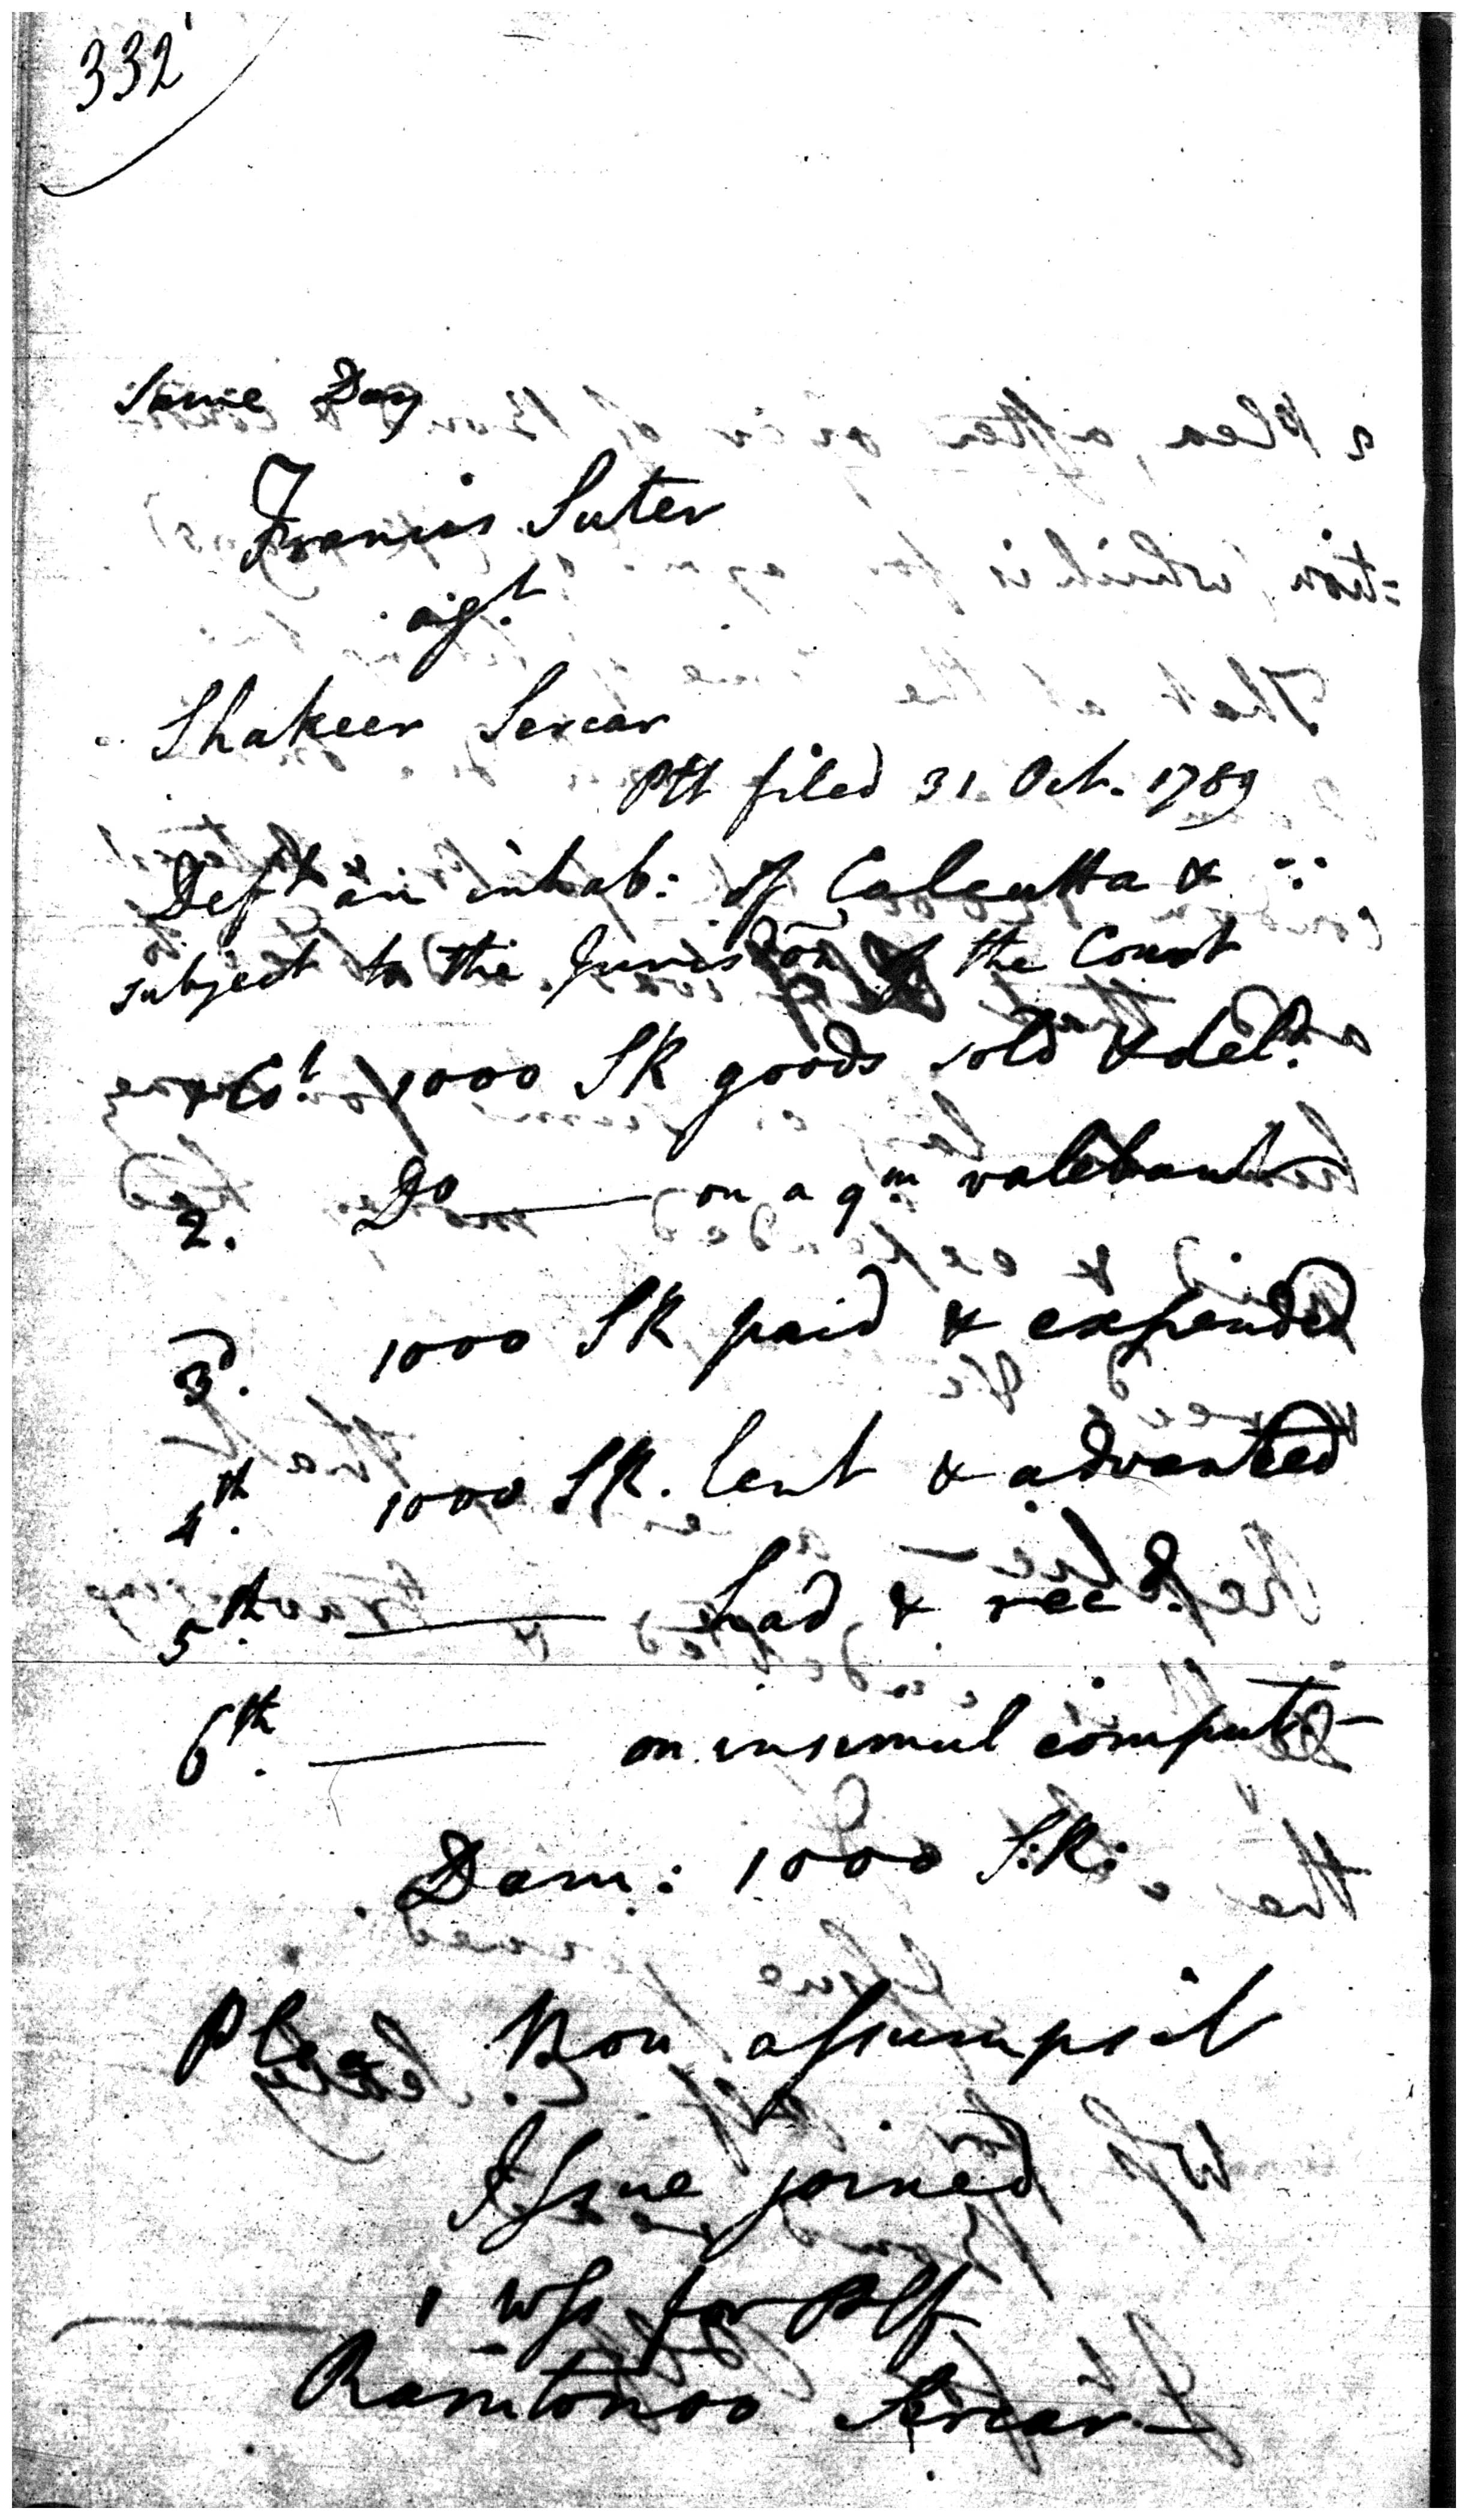 332
Same Day
Francis Suter
agt.
Shakeer Sercar
Plt filed 31 Oct. 1789
Deft. an inhab: of Calcutta &
subject to the Jurisdon of the Court
1000 SR goods sold & deld.
2. Do — on a qm. valebant
3d. 1000 SR paid & expended
4th. 1000 SR. lent & advanced
5th. — had & recd.
6th. — on insimul comput.
Dam: 1000 S:R:
Plea Non assumpsit
Issue joined
1 Wss for Plf
Ramtonoo Sercar